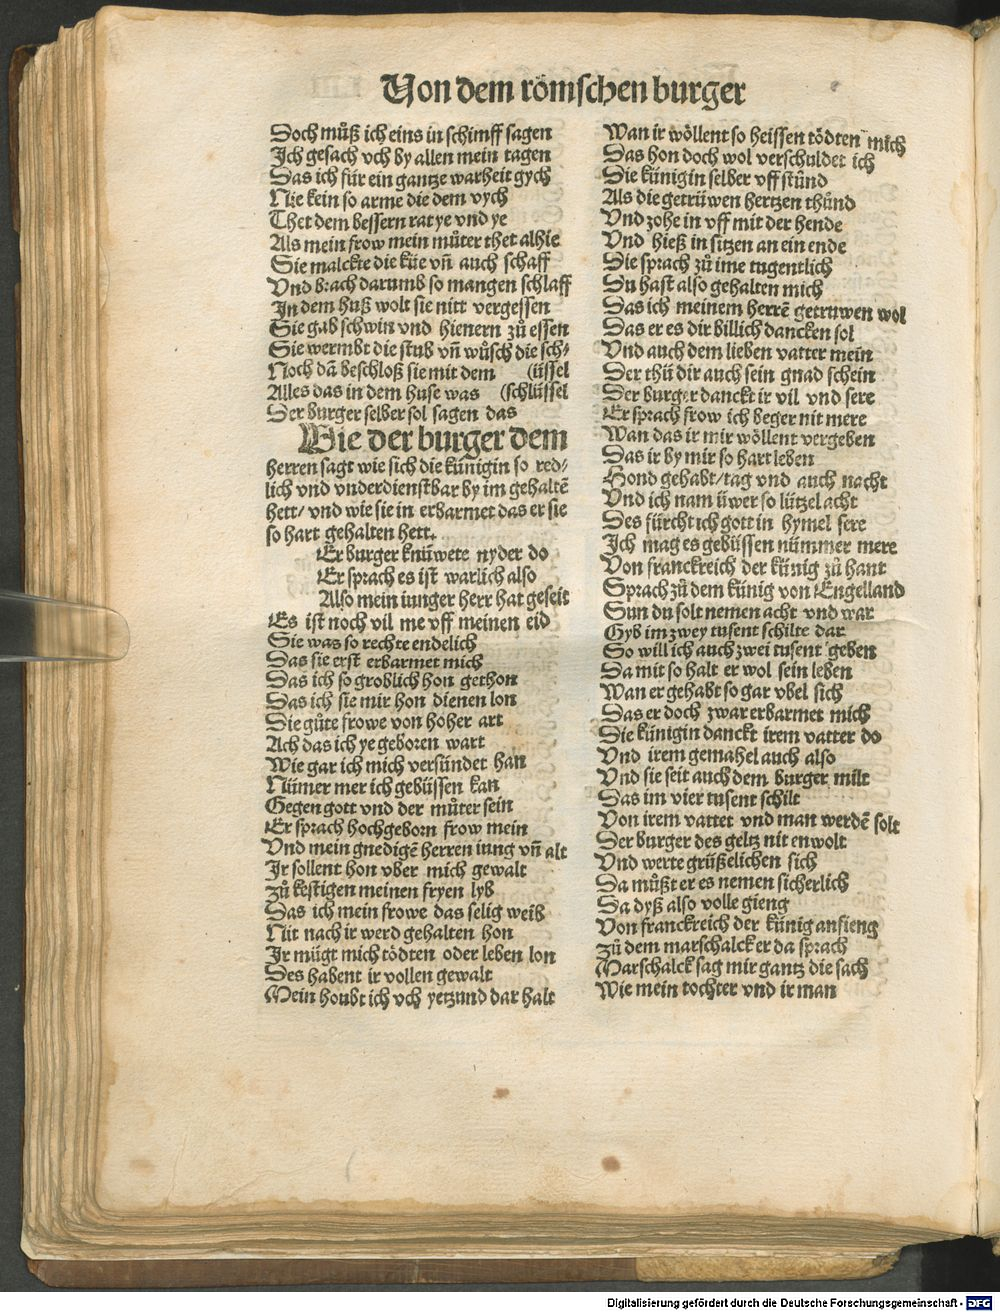 Von dem römschen burger
Doch můß ich eins in schimff sagen
Ich gesach vch by allen mein tagen
Das ich für ein gantze warheit gych
Nie kein so arme die dem vych
Thet dem bessern rat ye vnd ye
Als mein frow mein můter thet alhie
Sie malckte die küe vñ auch schaff
Vnd brach darumb so mangen schlaff
In dem huß wolt sie nitt vergessen
Sie gab schwin vnd hienern zů essen
Sie wermbt die stub vñ wůsch die sch⸗
Noch dã beschloß sie mit dem (üssel
Alles das in dem huse was (schlüssel
Der burger selber sol sagen das
Wie der burger dem
herren sagt wie sich die künigin so red⸗
lich vnd vnderdienstbar by im gehaltẽ
hett/ vnd wie sie in erbarmet das er sie
so hart gehalten hett.
Er burger knüwete nyder do
Er sprach es ist warlich also
Also mein iunger herr hat geseit
Es ist noch vil me vff meinen eid
Sie was so rechte endelich
Das sie erst erbarmet mich
Das ich so groblich hon gethon
Das ich sie mir hon dienen lon
Die gůte frowe von hoher art
Ach das ich ye geboren wart
Wie gar ich mich versündet han
Nümer mer ich gebüssen kan
Gegen gott vnd der můter sein
Er sprach hochgeborn frow mein
Vnd mein gnedigẽ herren iung vñ alt
Ir sollent hon vber mich gewalt
Zů kestigen meinen fryen lyb
Das ich mein frowe das selig weib
Nit nach ir werd gehalten hon
Ir mügt mich tödten oder leben lon
Des habent ir vollen gewalt
Mein houbt ich vch yetzund dar halt
Wan ir wöllent so heissen tödten mich
Das hon doch wol verschuldet ich
Die künigin selber vff stůnd
Als die getrüwen hertzen thůnd
Vnd zohe in vff mit der hende
Vnd hieß in sitzen an ein ende
Sie sprach zů ime tugentlich
Du hast also gehalten mich
Das ich meinem herrẽ getruwen wol
Das er es dir billich dancken sol
Vnd auch dem lieben vatter mein
Der thü dir auch sein gnad schein
Der burger danckt ir vil vnd sere
Er sprach frow ich beger nit mere
Wan das ir mir wöllent vergeben
Das ir by mir so hart leben
Hond gehabt/ tag vnd auch nacht
Vnd ich nam üwer so lützel acht
Des fürcht ich gott in hymel sere
Ich mag es gebüssen nümmer mere
Von franckreich der künig zů hant
Sprach zů dem künig von Engelland
Sun du solt nemen acht vnd war
Gyb im zwey tusent schilte dar
So will ich auch zwei tusent geben
Da mit so halt er wol sein leben
Wan er gehabt so gar vbel sich
Das er doch zwar erbarmet mich
Die künigin danckt irem vatter do
Vnd irem gemahel auch also
Vnd sie seit auch dem burger milt
Das im vier tusent schilt
Von irem vattet vnd man werdẽ solt
Der burger des geltz nit enwolt
Vnd werte grüßelichen sich
Da můßt er es nemen sicherlich
Da dyß also volle gieng
Von franckreich der künig anfieng
Zů dem marschalck er da sprach
Marschalck sag mir gantz die sach
Wie mein tochter vnd ir man
Digitalisierung gefördert durch die Deutsche Forschungsgemeinschaft - DFG